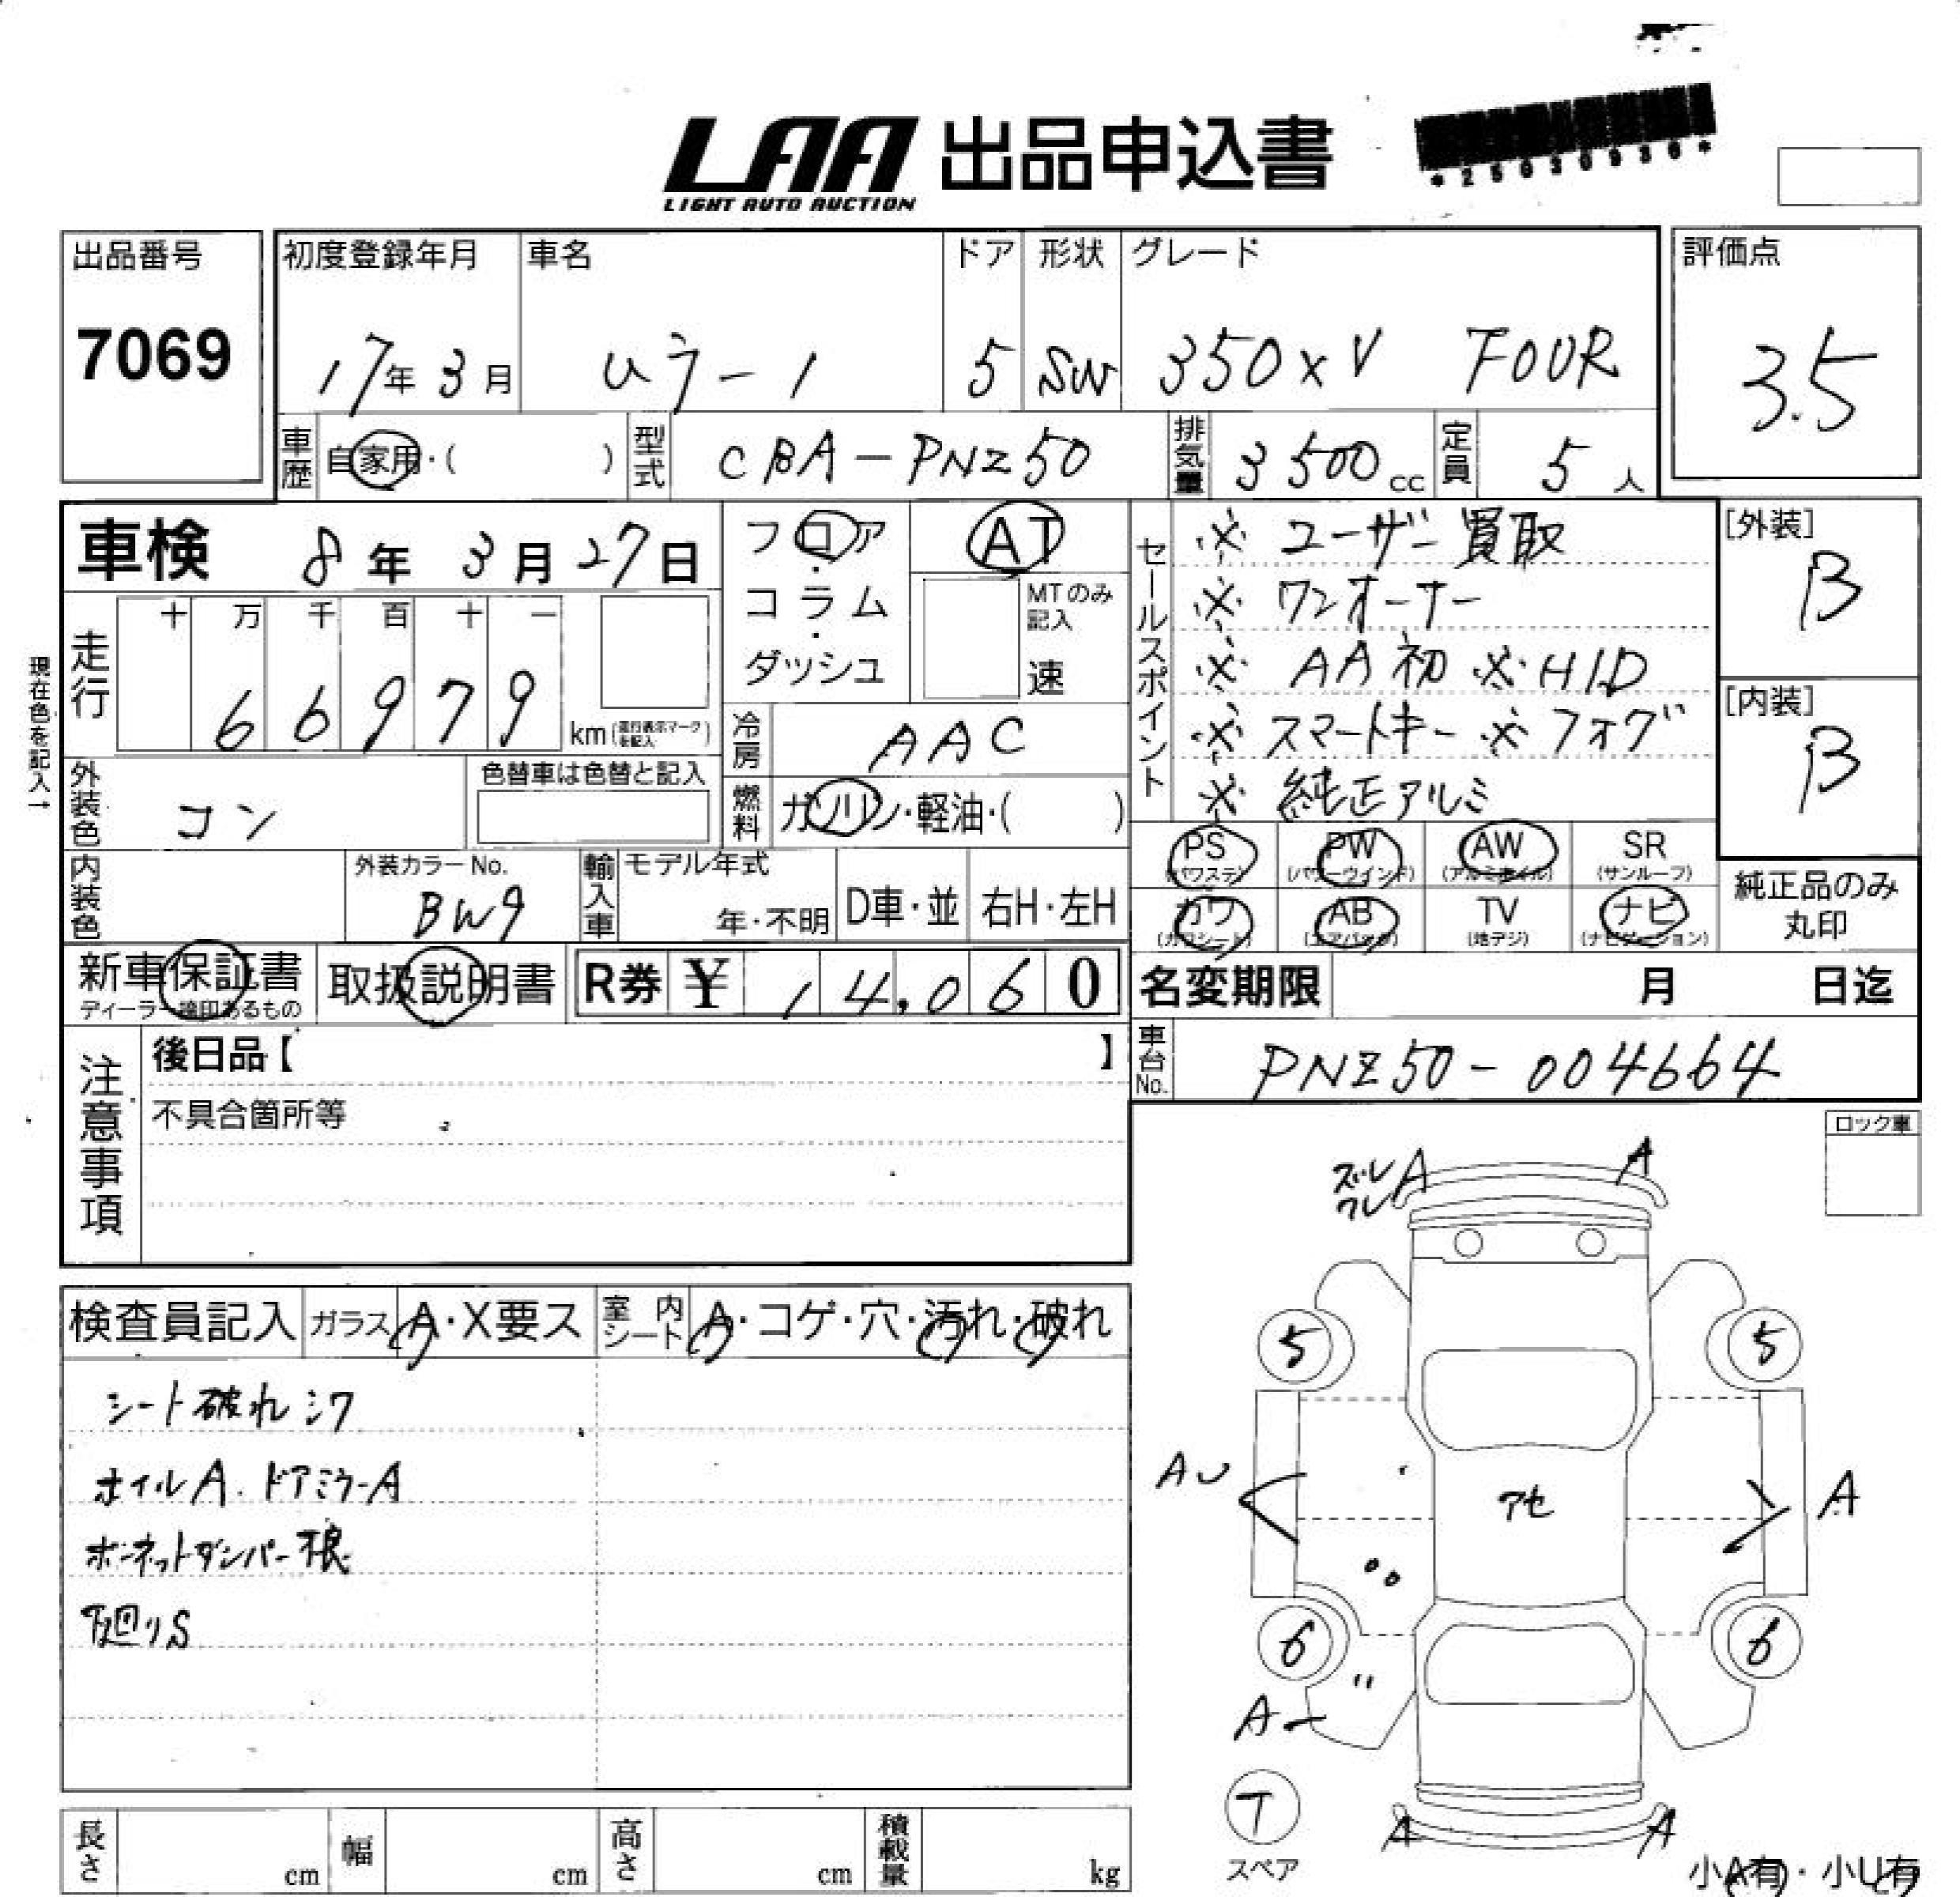 LAA 出品申込書
LIGHT AUTO AUCTION
*25030930*
出品番号
7069
初度登録年月 車名 ドア 形状 グレード
17年 3月 ムラー1 5 SW 350XV FOUR
評価点
3.5
車歴 自家用・( ) 型式 CBA-PNZ50 排気量 3500cc 定員 5人
車検 8年 3月27日
フロア・コラム・ダッシュ
AT
MTのみ記入
速
現在色を記入→
走行 十 万 千 百 十 一
66979 km(走行表示マークを記入)
冷房 AAC
外装色 コン
色替車は色替と記入
燃料 ガソリン・軽油・( )
セールスポイント
※ ユーザー買取
※ ワンオーナー
※ AA初 ※ HID
※ スマートキー ※ フォグ
※ 純正アルミ
[外装]
B
[内装]
B
PS (パワステ) PW (パワーウインド) AW (アルミホイル) SR (サンルーフ)
カワ (カワシート) AB (エアバック) TV (地デジ) ナビ (ナビゲーション)
純正品のみ丸印
内装色
外装カラーNo.
BW9
輸入車 モデル年式
年・不明 D車・並 右H・左H
新車保証書
ディーラー捺印あるもの
取扱説明書
R券 ¥ 14,060
名変期限 月 日迄
車台No. PNZ50-004664
注意事項
後日品【 】
不具合箇所等
ロック車
検査員記入 ガラス A・X要ス 室内シート A・コゲ・穴・汚れ・破れ
シート破れ シワ
ホイルA. ドアミラーA
ボンネットダンパー根
下廻りS
ズレ
ワレ
A
A
5
5
AU
アセ
A
6
6
A
T
スペア
A
A
小A有・小U有
長さ cm 幅 cm 高さ cm 積載量 kg